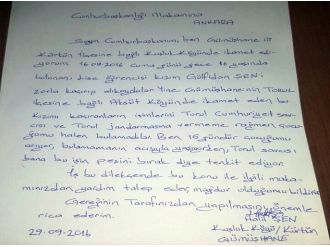 Cumhurbaşkanlığı Makamına
ANKARA
Sayın Cumhurbaşkanım, ben Gümüşhane ili
Kürtün ilçesine bağlı Kuşluk Köyünde ikamet edi
yorum 16.09.2016 cuma günü gece 16 yaşında
bulunan Lise öğrencisi kızım Gülfidan ŞEN'i
zorla kaçırıp alıkoydular Yine Gümüşhanenin Torul
ilçesine bağlı Köyünde ikamet eden bu
kızımı kaçıranların isimlerini Torul Cumhuriyet sav
cısı ve Torul jandarmasına vermeme rağmen çocu
ğumu halen bulamadılar. Ben 15 gündür çocuğumu
arıyor, bulamamanın acısıyla yaşıyorken, Torul savcısı
bana bu işin peşini bırak diye tehdit ediyor.
İş bu dilekçemde bu konu ile ilgili maka
mınızdan yardım talep eder, mağdur olduğumu bildirir
Gereğinin Tarafınızdan yapılmasını önemle
rica ederim.
Halil ŞEN
Kuşluk Köyü/Kürtün
29.09.2016 GÜMÜŞHANE